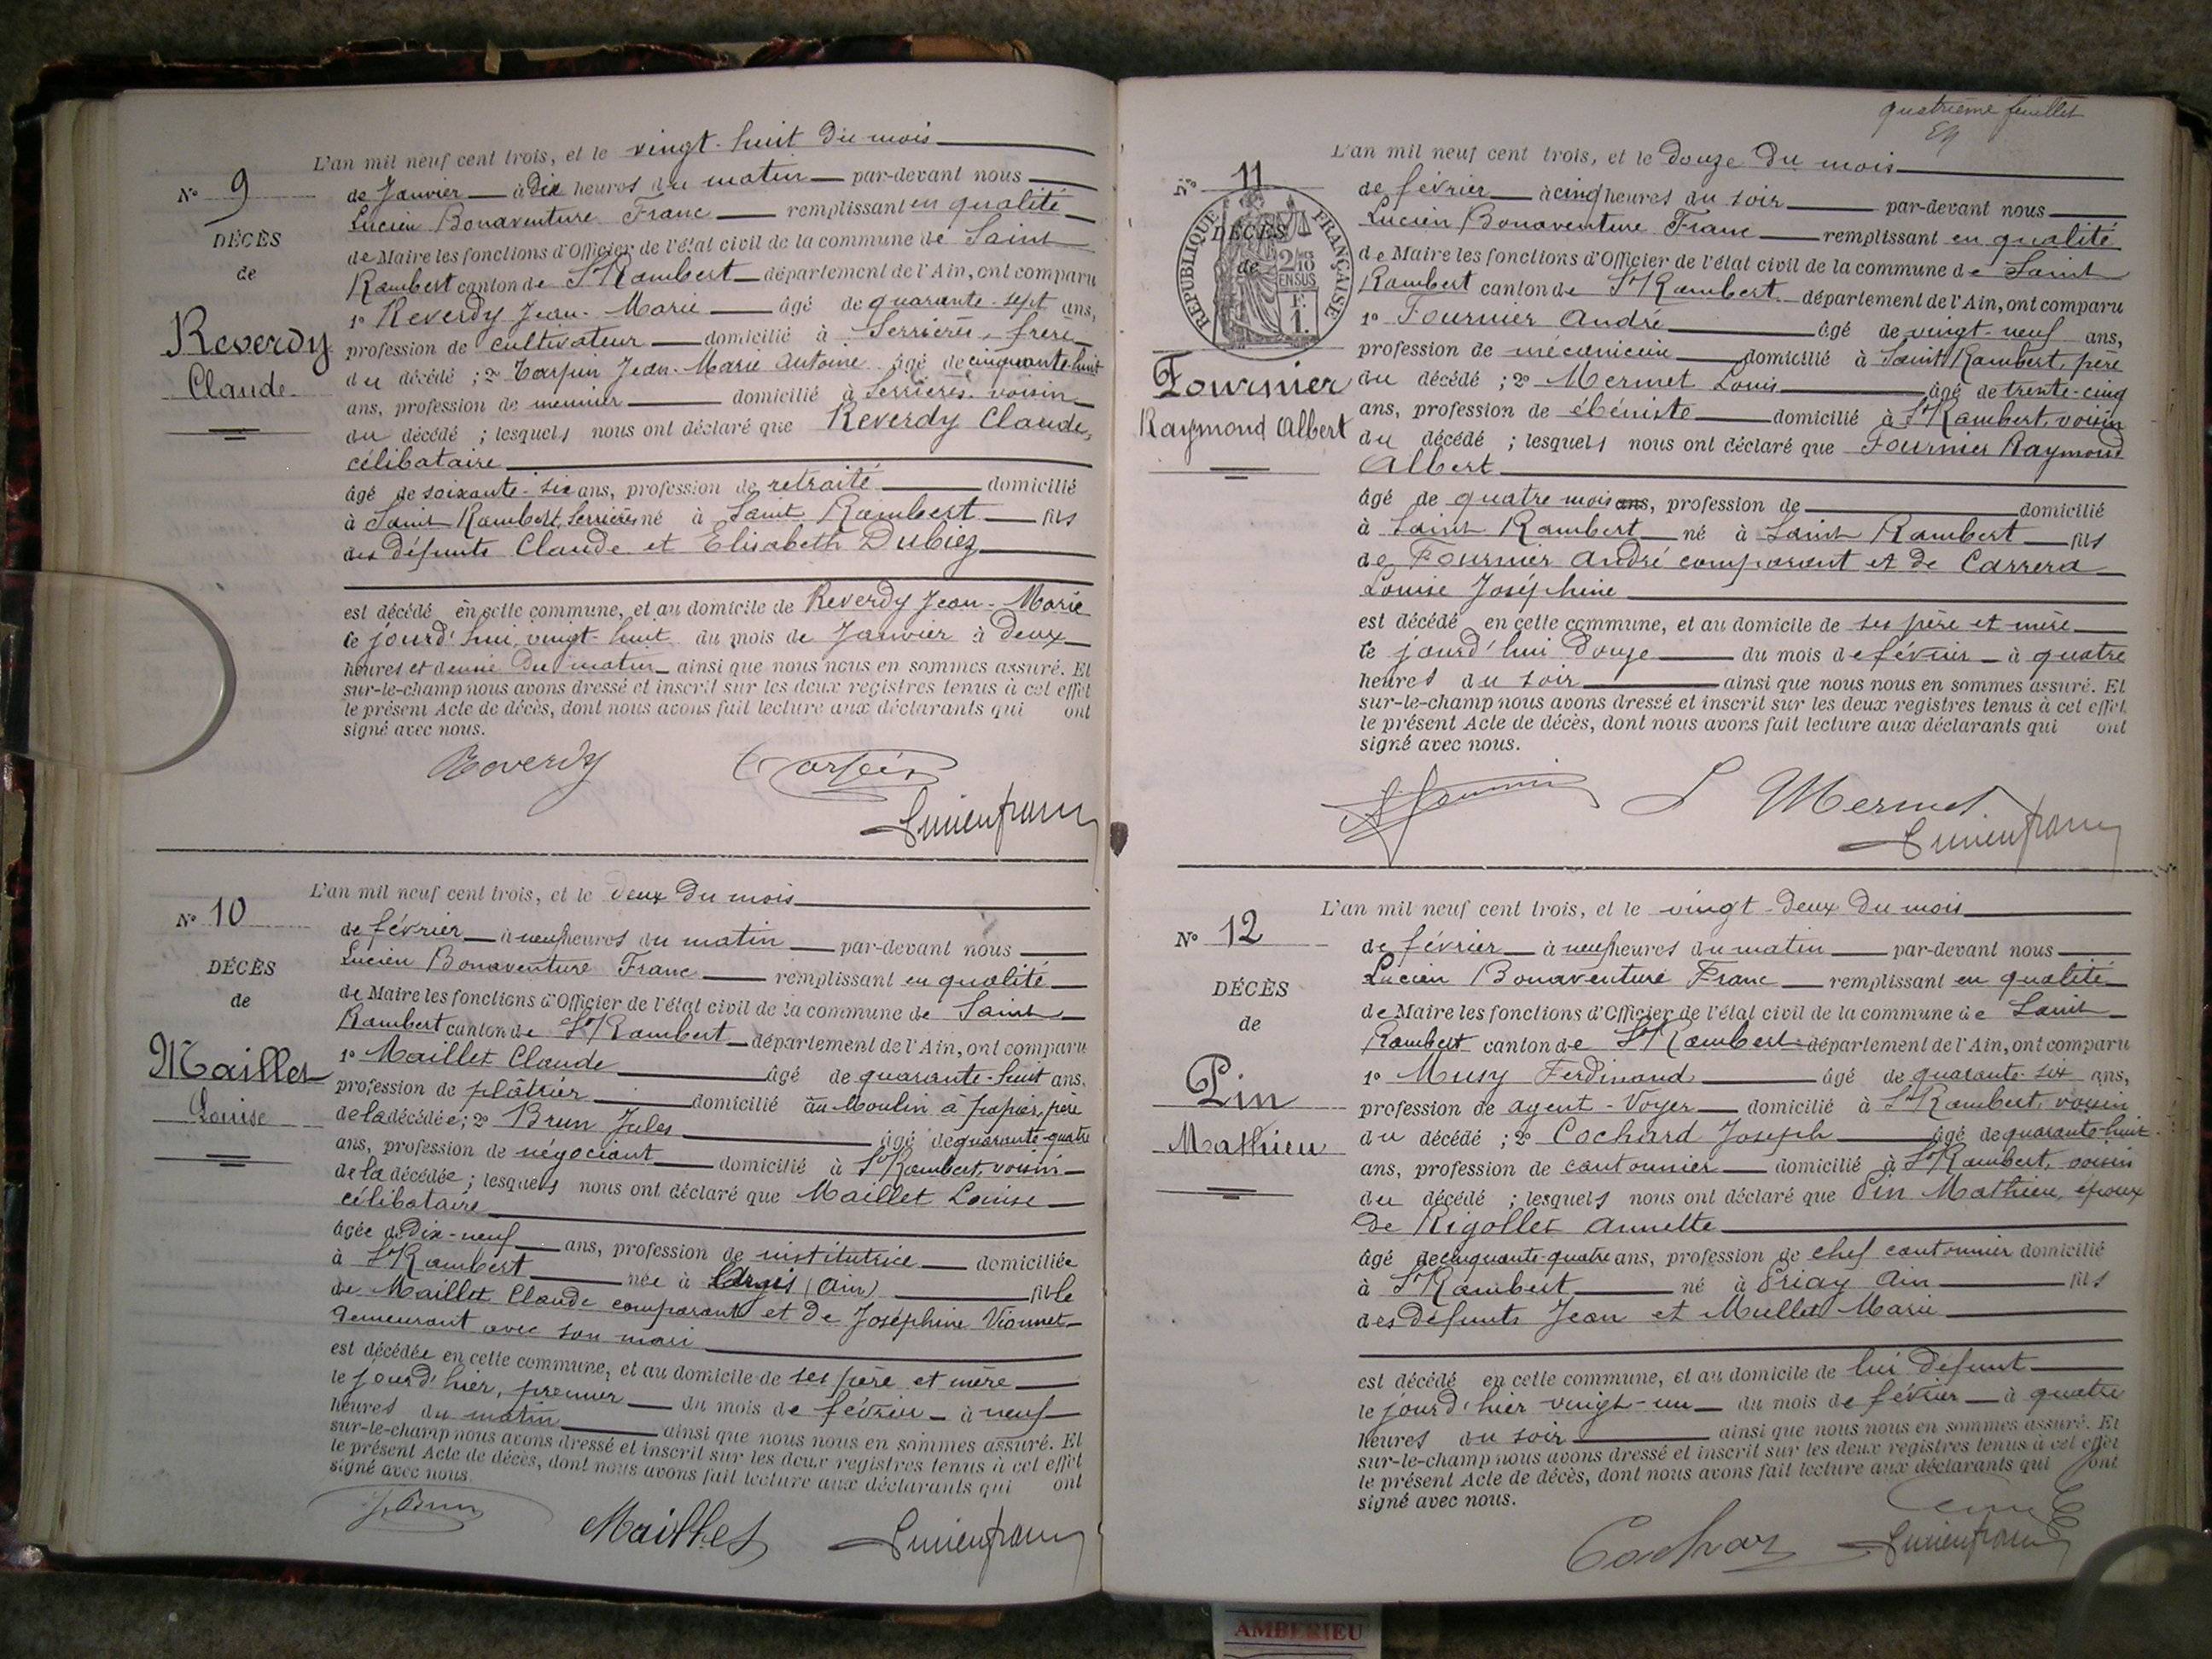 L'an mil neuf cent trois, et le vingt-huit du mois
N° 9
de Janvier à dix heures du matin par-devant nous
Lucien Bonaventure Franc remplissant en qualité
DÉCÈS
de Maire les fonctions d'Officier de l'état civil de la commune de Saint
de
Rambert canton de St Rambert département de l'Ain, ont comparu
Reverdy
Claude
1° Reverdy Jean-Marie âgé de quarante-sept ans,
profession de cultivateur domicilié à Serrières, frère
du décédé ; 2° Tarpin Jean-Marie Antoine âgé de cinquante-huit
ans, profession de meunier domicilié à Serrières, voisin
du décédé ; lesquels nous ont déclaré que Reverdy Claude,
célibataire
âgé de soixante-six ans, profession de retraité domicilié
à Saint Rambert, Serrières né à Saint Rambert fils
des défunts Claude et Elisabeth Dubiez
est décédé en cette commune, et au domicile de Reverdy Jean-Marie
ce jourd'hui vingt-huit du mois de Janvier à deux
heures et demie du matin ainsi que nous nous en sommes assuré. Et
sur-le-champ nous avons dressé et inscrit sur les deux registres tenus à cet effet
le présent Acte de décès, dont nous avons fait lecture aux déclarants qui ont
signé avec nous.
Reverdy Tarpin
Lucien Franc
L'an mil neuf cent trois, et le deux du mois
N° 10
de février à neuf heures du matin par-devant nous
Lucien Bonaventure Franc remplissant en qualité
DÉCÈS
de Maire les fonctions d'Officier de l'état civil de la commune de Saint
de
Rambert canton de St Rambert département de l'Ain, ont comparu
Maillet
Louise
1° Maillet Claude âgé de quarante-huit ans,
profession de plâtrier domicilié au Moulin à papier, père
de la décédée ; 2° Brun Jules âgé de quarante-quatre
ans, profession de négociant domicilié à St Rambert, voisin
de la décédée ; lesquels nous ont déclaré que Maillet Louise
célibataire
âgée de dix-neuf ans, profession de institutrice domiciliée
à St Rambert née à (Ain) fille
de Maillet Claude comparant et de Joséphine Vionnet
demeurant avec son mari
est décédée en cette commune, et au domicile de ses père et mère
le jour d'hier, premier du mois de février à neuf
heures du matin ainsi que nous nous en sommes assuré. Et
sur-le-champ nous avons dressé et inscrit sur les deux registres tenus à cet effet
le présent Acte de décès, dont nous avons fait lecture aux déclarants qui ont
signé avec nous.
J. Brun Maillet Lucien Franc
quatrième feuillet
L'an mil neuf cent trois, et le douze du mois
N° 11
de février à cinq heures du soir par-devant nous
Lucien Bonaventure Franc remplissant en qualité
RÉPUBLIQUE FRANÇAISE
2/10 EN SUS
F. 1.
DÉCÈS
de Maire les fonctions d'Officier de l'état civil de la commune de Saint
de
Rambert canton de St Rambert département de l'Ain, ont comparu
Fournier
Raymond Albert
1° Fournier André âgé de vingt-neuf ans,
profession de mécanicien domicilié à Saint Rambert, père
du décédé ; 2° Mermet Louis âgé de trente-cinq
ans, profession de ébéniste domicilié à St Rambert, voisin
du décédé ; lesquels nous ont déclaré que Fournier Raymond
Albert
âgé de quatre mois ans, profession de domicilié
à Saint Rambert né à Saint Rambert fils
de Fournier André comparant et de Carrera
Louise Joséphine
est décédé en cette commune, et au domicile de ses père et mère
ce jourd'hui douze du mois de février à quatre
heures du soir ainsi que nous nous en sommes assuré. Et
sur-le-champ nous avons dressé et inscrit sur les deux registres tenus à cet effet
le présent Acte de décès, dont nous avons fait lecture aux déclarants qui ont
signé avec nous.
L Mermet
Lucien Franc
L'an mil neuf cent trois, et le vingt-deux du mois
N° 12
de février à neuf heures du matin par-devant nous
Lucien Bonaventure Franc remplissant en qualité
DÉCÈS
de Maire les fonctions d'Officier de l'état civil de la commune de Saint
de
Rambert canton de St Rambert département de l'Ain, ont comparu
Pin
Mathieu
1° Musy Ferdinand âgé de quarante-six ans,
profession de agent-Voyer domicilié à St Rambert, voisin
du décédé ; 2° Cochard Joseph âgé de quarante-huit
ans, profession de cantonnier domicilié à St Rambert, voisin
du décédé ; lesquels nous ont déclaré que Pin Mathieu, époux
de Rigollet Annette
âgé de cinquante-quatre ans, profession de chef cantonnier domicilié
à St Rambert né à Priay Ain fils
des défunts Jean et Mullet Marie
est décédé en cette commune, et au domicile de lui défunt
le jour d'hier vingt-un du mois de février à quatre
heures du soir ainsi que nous nous en sommes assuré. Et
sur-le-champ nous avons dressé et inscrit sur les deux registres tenus à cet effet
le présent Acte de décès, dont nous avons fait lecture aux déclarants qui ont
signé avec nous.
Cochard Lucien Franc
AMBERIEU